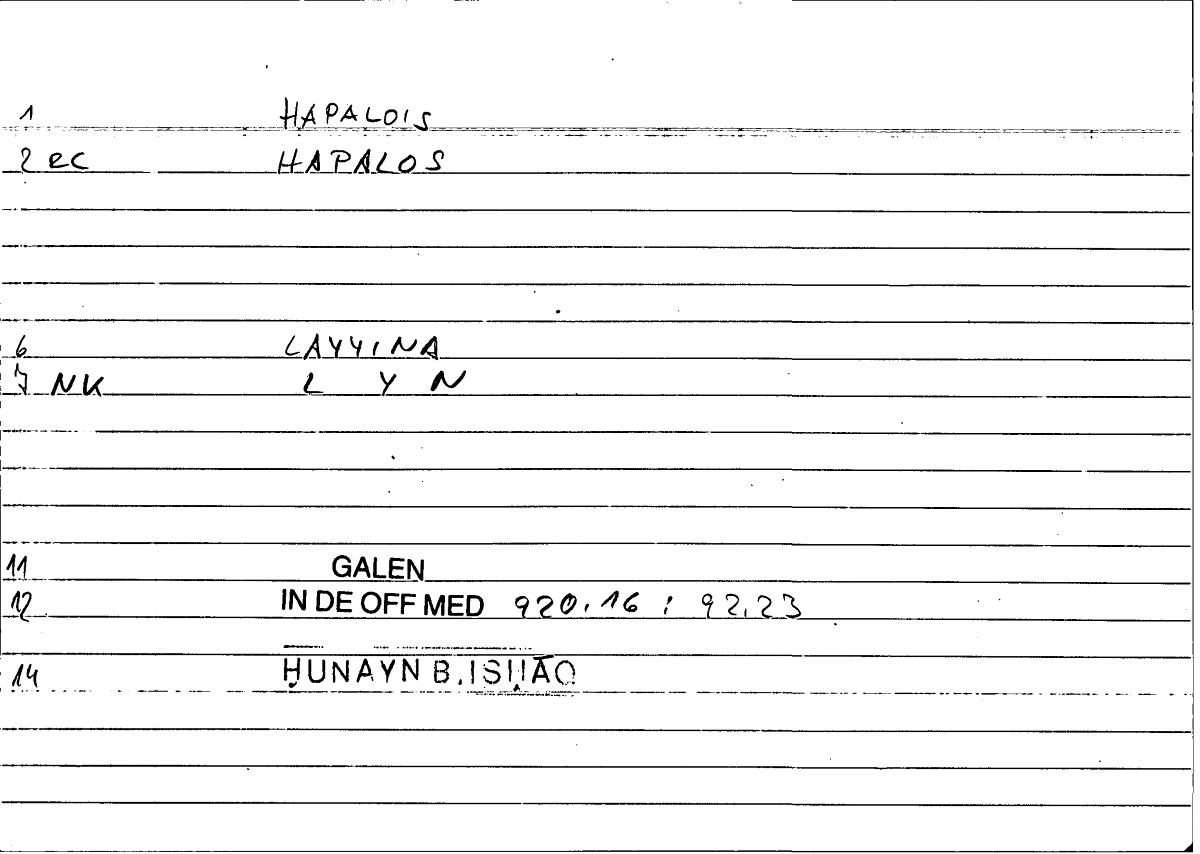 1 HAPALOIS
2 RC HAPALOS
6 LAYYINA
7 NK L Y N
11 GALEN
12 IN DE OFF MED 920.16 : 92.23
14 ḤUNAYN B. ISḤĀQ